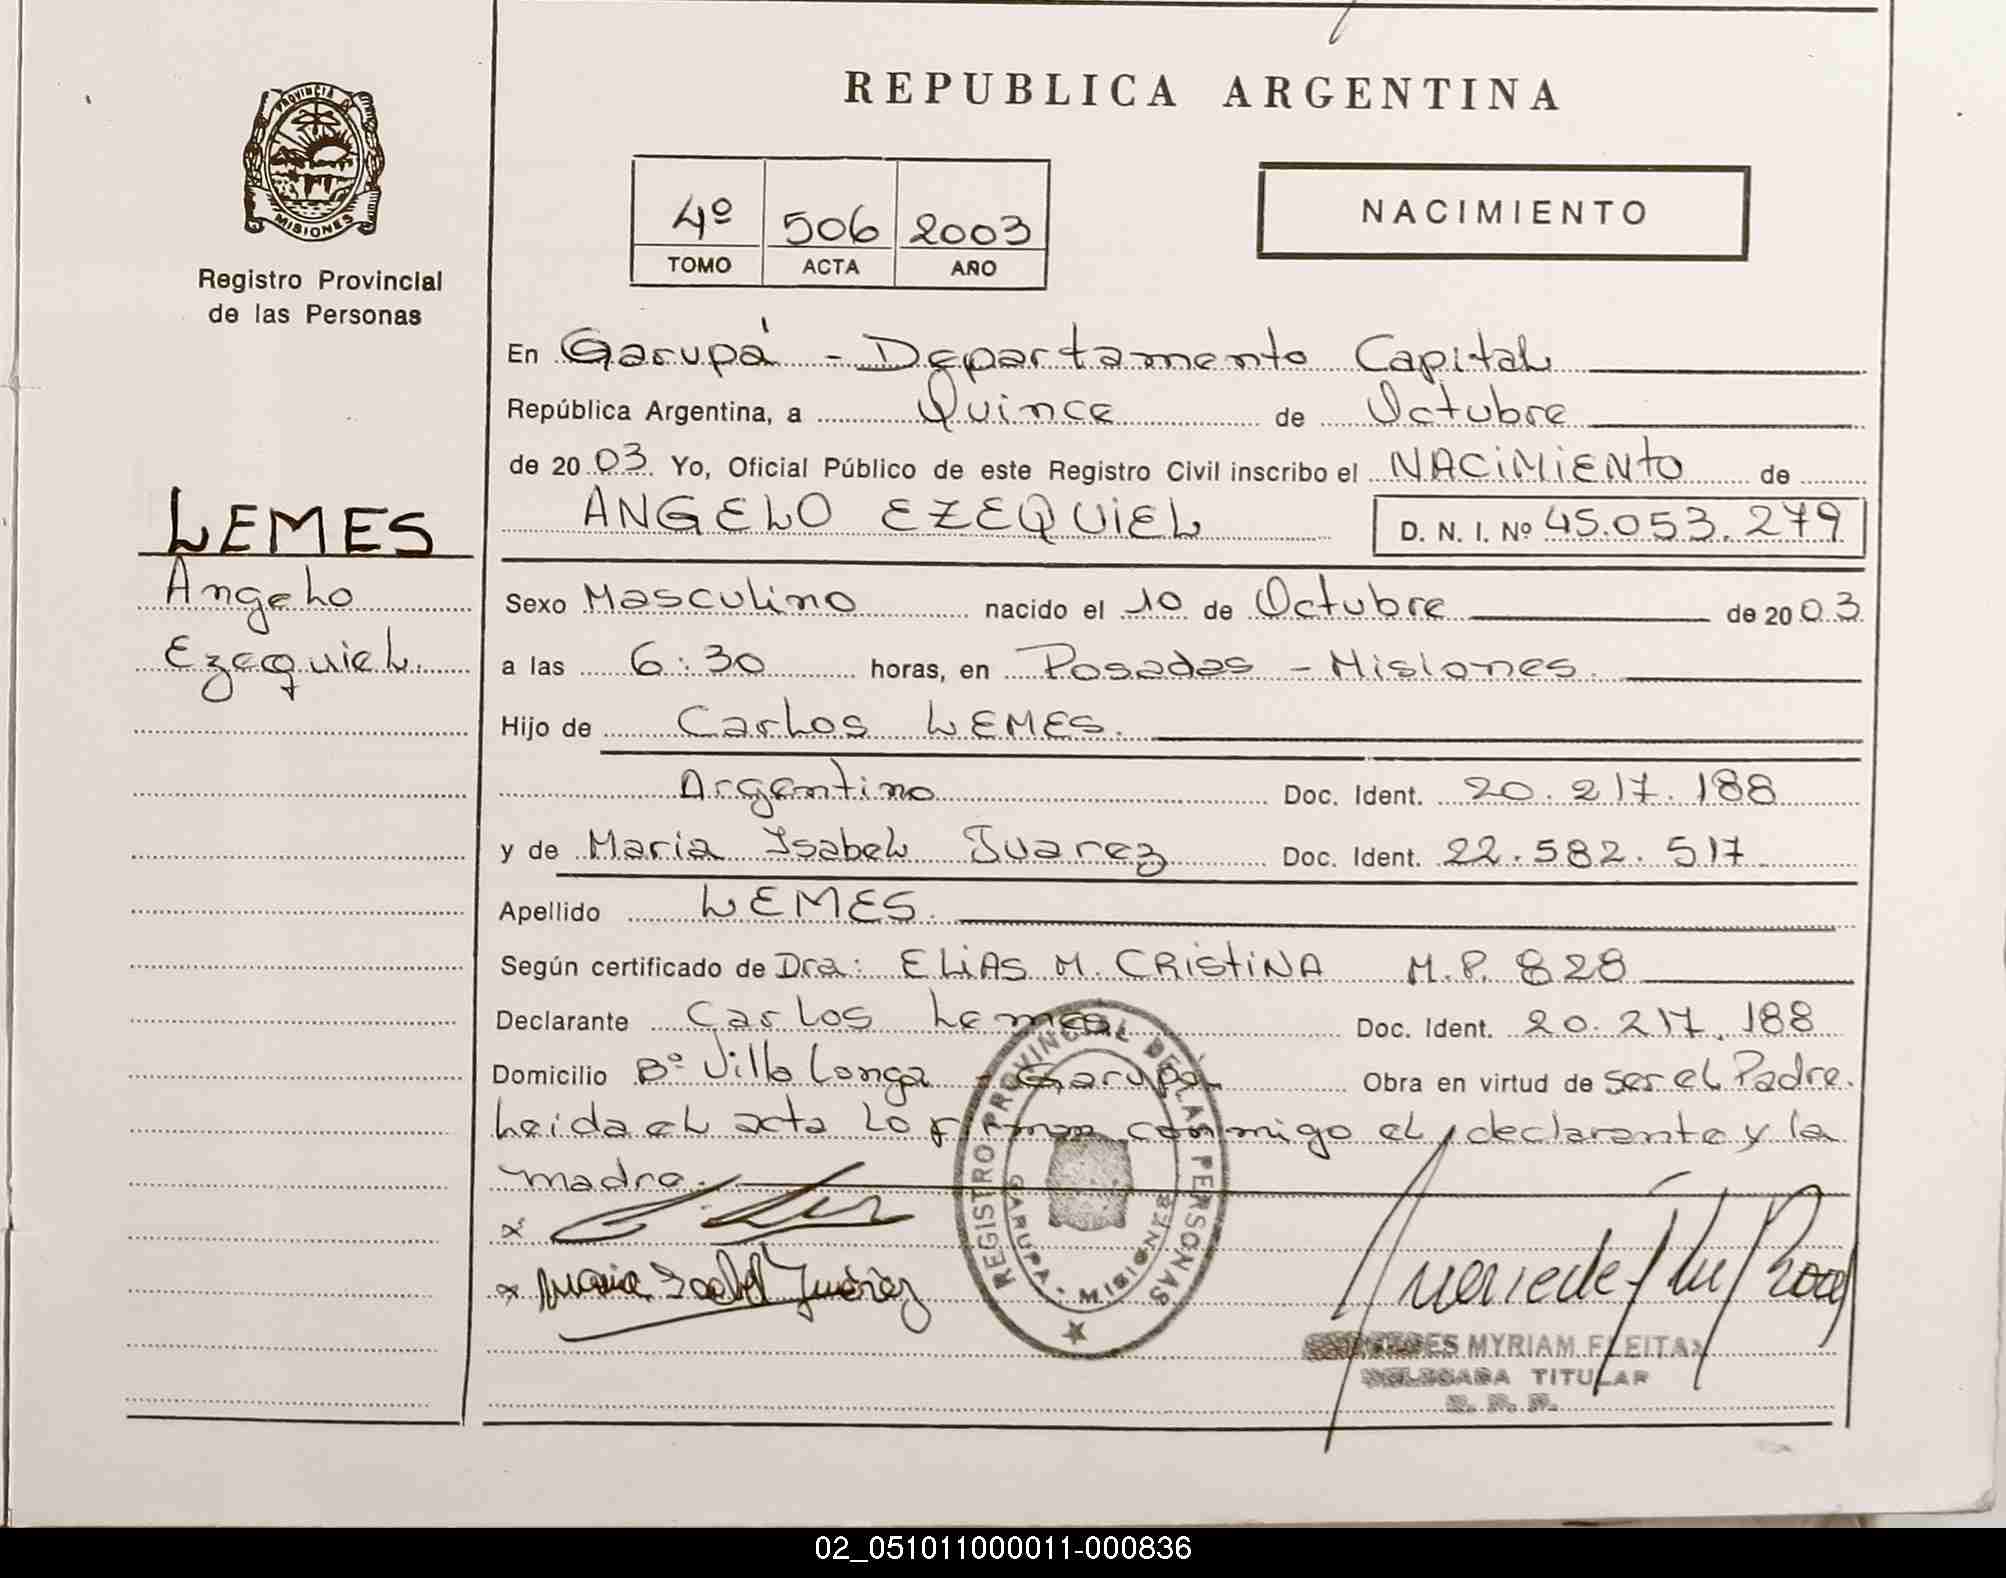 REPUBLICA ARGENTINA
PROVINCIA DE
MISIONES
Registro Provincial
de las Personas
4º 506 2003
TOMO ACTA AÑO
NACIMIENTO
LEMES
Angelo
Ezequiel.
En Garupá - Departamento Capital
República Argentina, a Quince de Octubre
de 2003. Yo, Oficial Público de este Registro Civil inscribo el NACIMIENTO de
ANGELO EZEQUIEL D. N. I. Nº 45.053.279
Sexo Masculino nacido el 10 de Octubre de 2003
a las 6:30 horas, en Posadas - Misiones.
Hijo de Carlos LEMES.
Argentino Doc. Ident. 20.217.188
y de Maria Isabel Juarez Doc. Ident. 22.582.517
Apellido LEMES.
Según certificado de Dra: ELIAS M. CRISTINA M.P. 828
Declarante Carlos Lemes Doc. Ident. 20.217.188
Domicilio Bº Villa Longa - Garupá Obra en virtud de ser el Padre.
Leida el acta lo firman conmigo el declarante y la
madre.
x
x Maria Isabel Juárez
REGISTRO PROVINCIAL DE LAS PERSONAS
GARUPA - MISIONES
MYRIAM FLEITAS
DELEGADA TITULAR
02_051011000011-000836